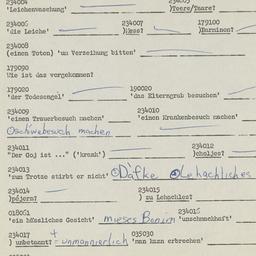 234004 234005
'Leichenwaschung' )Toore/Taare?
234006 234007 179100
'die Leiche' )Mess? )Barminen?
234008
(einen Toten) 'um Verzeihung bitten'
179090
Wie ist das vorgekommen?
179020 190020
'der Todesengel' 'das Elterngrab besuchen'
234009 234010
'einen Trauerbesuch machen' 'einen Krankenbesuch machen'
machen
234011 234012
"Der Goj ist ..." ('krank') )choljes?
234013
'zum Trotze stirbt er nicht' Dafke Lehachliches
234014 234015
)pejern? ) zu Lehachles?
018061 234016
'ein hässliches Gesicht' mieses Bonim 'unschmackhaft'
234017 035030
) unbetamt? = unmannierlich 'man kann erbrechen'